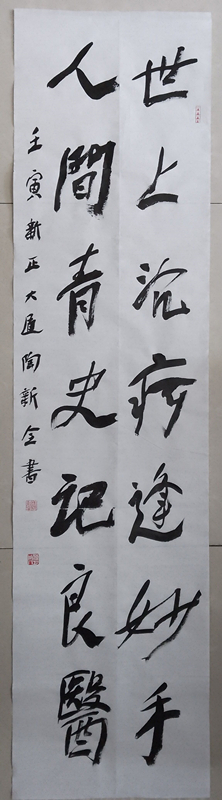 世上沉疴逢妙手
人間青史記良醫
壬寅新正大厦陶新令書